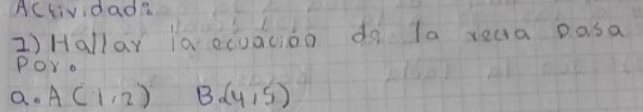 Actividad2.
1) Hallar la ecuación de la recta pasa
por.
a. A (1,2) B.(4,5)